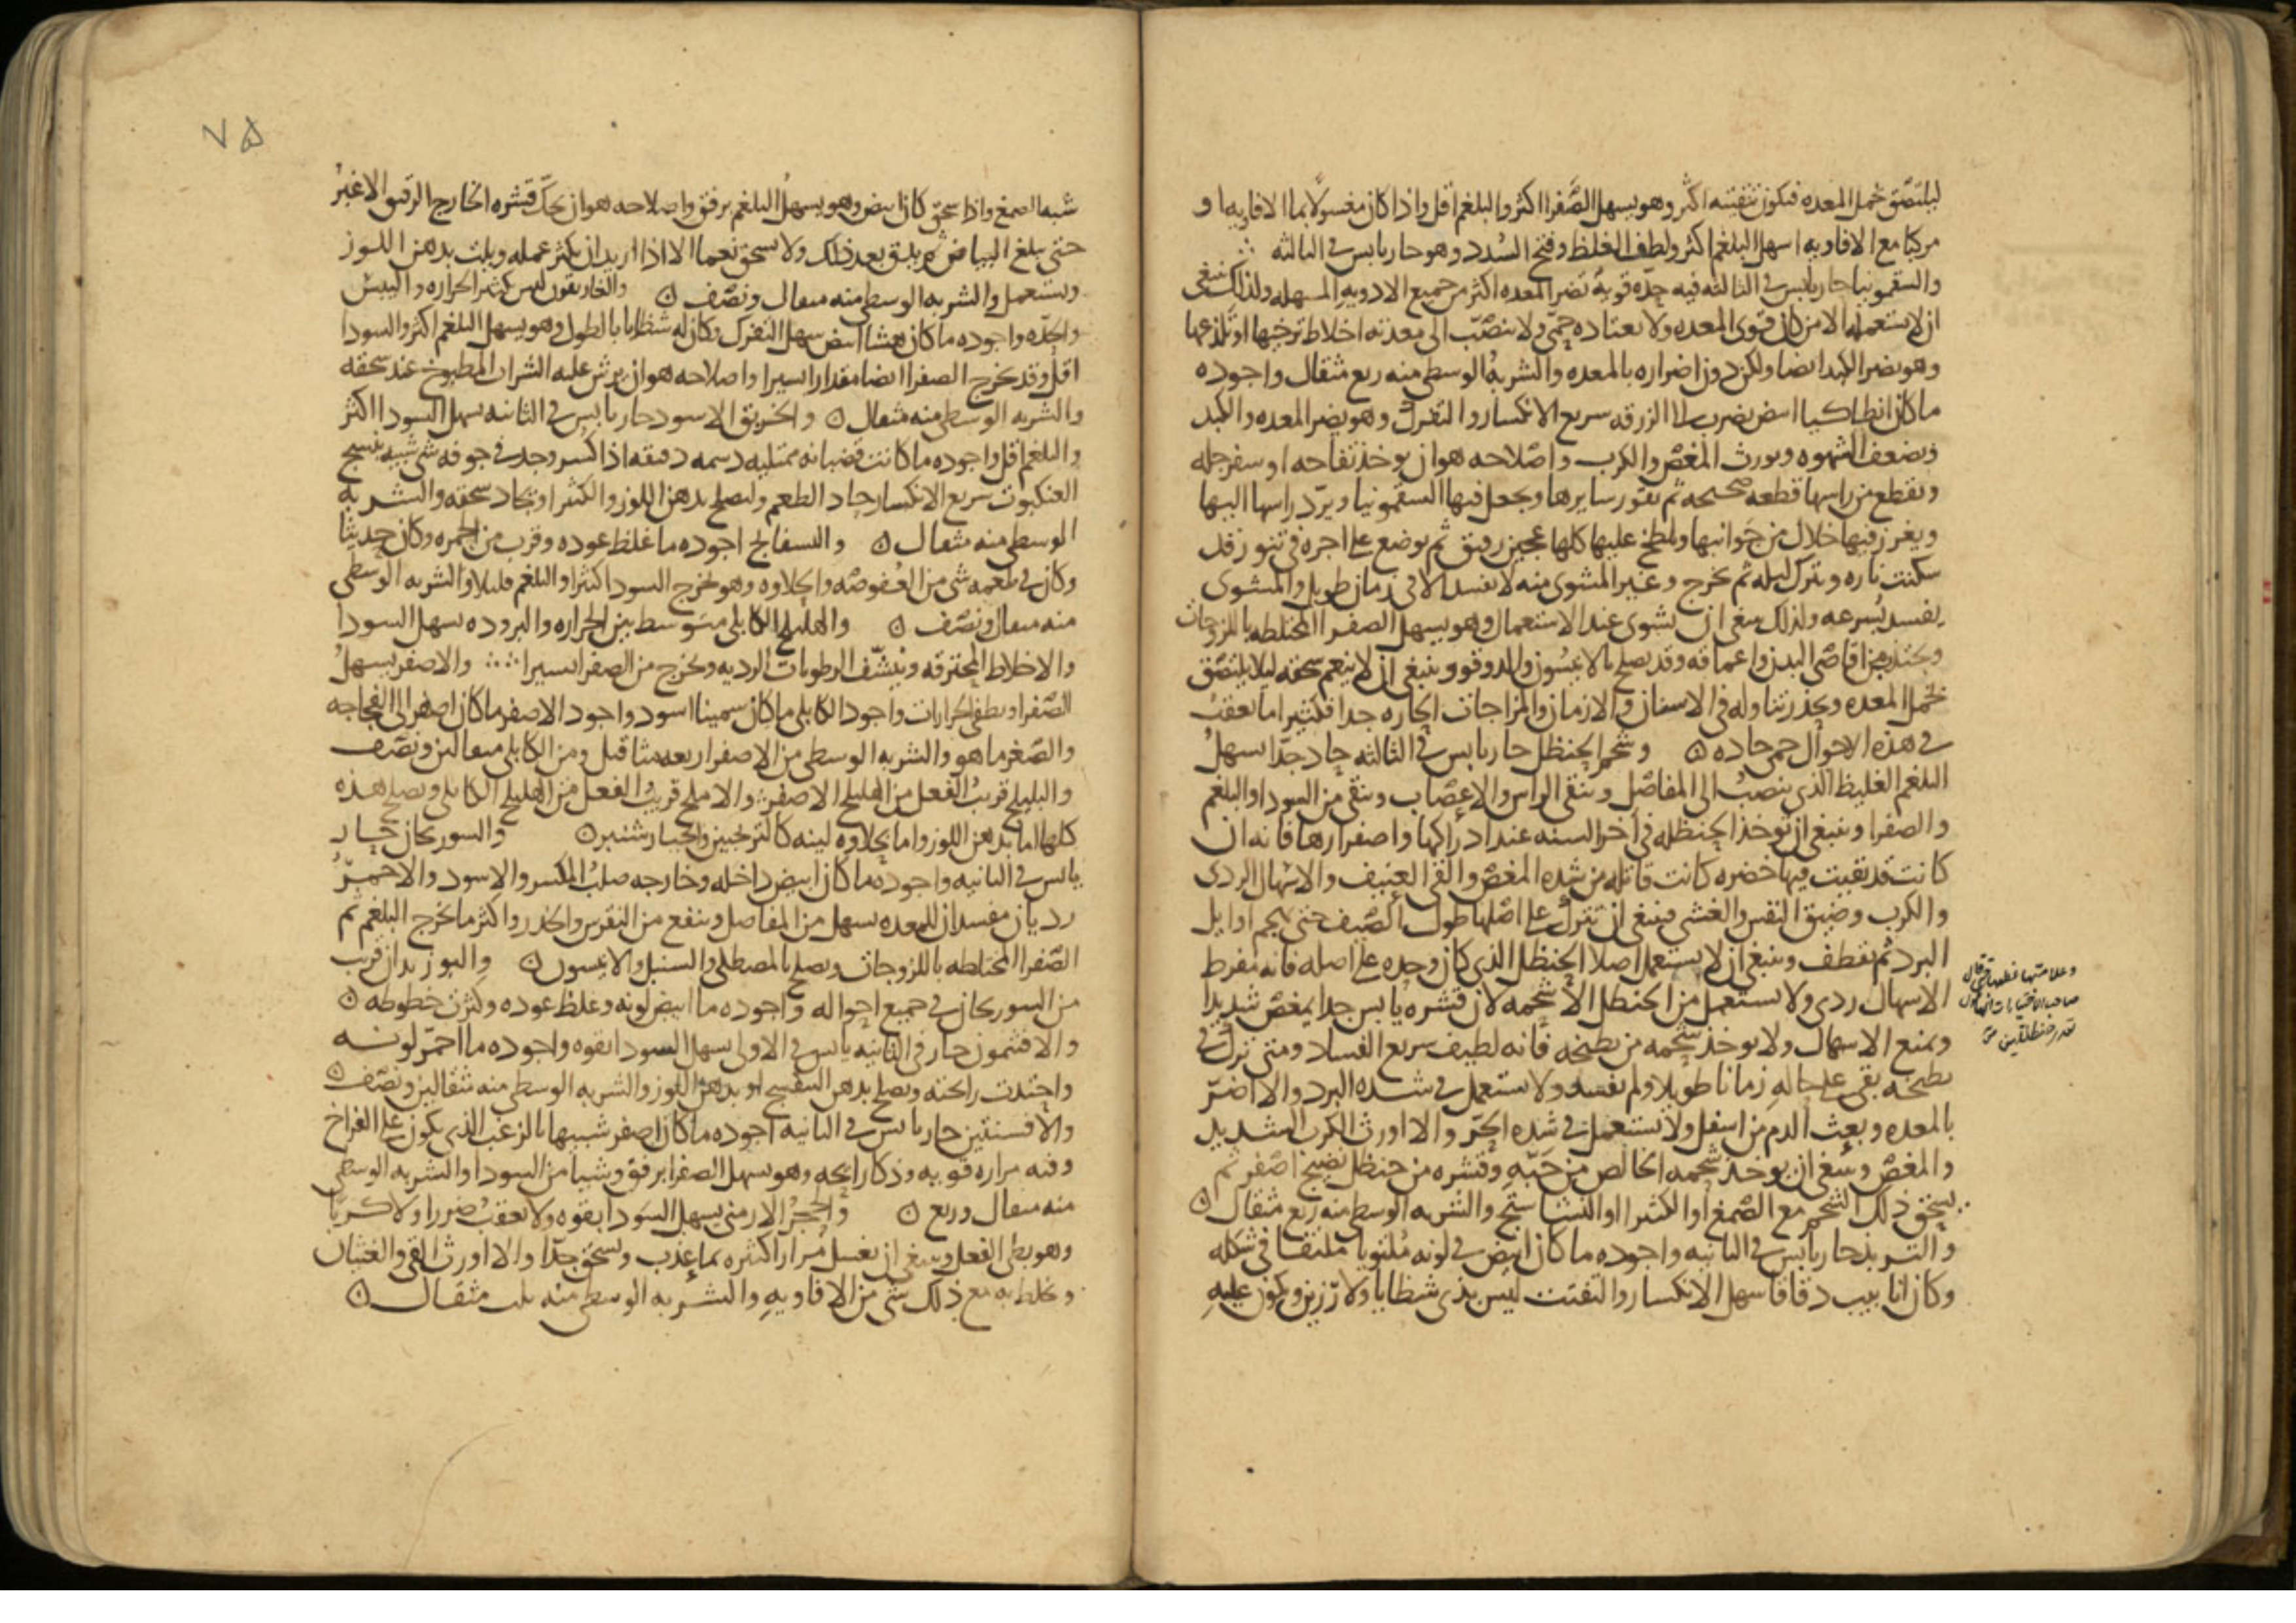 ليلتصق بخمل المعده فيكون تنقيته اكثر وهو يسهل الصفرا اكثر والبلغم اقل واذا كان مغسولا بما الافاويه او
مركبا مع الافاويه اسهل البلغم اكثر ولطف الغلظ وفتح السدد وهو حار يابس في الثالثه
والسقمونيا حار يابس في الثالثه فيه حده قويه تضر المعده اكثر من جميع الادويه المسهله ولذلك ينبغي
ان لا يستعمله الا من كان قوي المعده ولا يعتاده حمي ولا ينصب الى معدته اخلاط ترخيها او تلذعها
وهو يضر الكبد ايضا ولكن دون اضراره بالمعده والشربه الوسطى منه ربع مثقال واجوده
ما كان انطاكيا ابيض يضرب الى الزرقه سريع الانكسار والتفرك وهو يضر المعده والكبد
ويضعف الشهوه ويورث المغص والكرب واصلاحه هو ان يوخذ تفاحه او سفرجله
ويقطع من راسها قطعه صحيحه ثم يقور سايرها ويجعل فيها السقمونيا ويرد راسها اليها
ويغرز فيها خلال من جوانبها ويلطخ عليها كلها عجين رقيق ثم يوضع على اجره في تنور قد
سكنت ناره ويترك ليله ثم يخرج وغير المشوى منه لا يفسد الا في زمان طويل والمشوى
يفسد بسرعه ولذلك ينبغي ان يشوى عند الاستعمال وهو يسهل الصفرا المختلطه باللزوجات
ويجتذبه من اقاصي البدن واعماقه وقد يصلح بالانيسون والدوقو وينبغي ان لا ينعم سحقه ليلا يلتصق
بخمل المعده ويحذر تناوله في الاسنان والازمان والمزاجات الحاره جدا فكثيرا ما تعقب
في هذه الاحوال حمى حاده ۞ وشحم الحنظل حار يابس في الثالثه حاد جدا يسهل
البلغم الغليظ الذي ينصب الى المفاصل وينقي الراس والاعصاب وينقي من السودا والبلغم
والصفرا وينبغي ان توخذ الحنظله في اخر السنه عند ادراكها واصفرارها فانه ان
كانت قد بقيت فيها خضره كانت قاتله من شده المغص والقي العنيف والاسهال الردى
والكرب وضيق النفس والغشى فينبغي ان تترك على اصلها طول الصيف حتى يهجم اوايل
البرد ثم تقطف وينبغي ان لا يستعمل اصلا الحنظل الذي كان وحده على اصله فانه مفرط
الاسهال ردى ولا يستعمل من الحنظل الا شحمه لان قشره يابس جدا يمغص شديدا
ويمنع الاسهال ولا يوخذ شحمه من بطيخه فانه لطيف سريع الفساد ومتى ترك في
بطيخه بقى على حاله زمانا طويلا ولم يفسد ولا يستعمل في شده البرد والا اضر
بالمعده وبعث الدم من اسفل ولا يستعمل في شده الحر والا اورث الكرب الشديد
والمغص وينبغي ان يوخذ شحمه الخالص من حبه وقشره من حنظل نضيج اصفر ثم
يسحق ذلك الشحم مع الصمغ او الكثيرا او النشاستج والشربه الوسطى منه ربع مثقال ۞
والتربد حار يابس في الثانيه واجوده ما كان ابيض في لونه ملتويا ملتفا في شكله
وكان انابيب دقاقا سهل الانكسار والتفتت ليس بذى شظايا ولا رزين ويكون عليه
وعلامتها
صاحب الاختيارات
٧٥
شبه الصمغ واذا سحق كان ابيض وهو يسهل البلغم برفق واصلاحه هو ان يحك قشره الخارج الرقيق الاغبر
حتى يبلغ البياض ثم يدق بعد ذلك ولا يسحق نعما الا اذا اريد ان يكثر عمله ويلت بدهن اللوز
ويستعمل والشربه الوسطى منه مثقال ونصف ۞ والغاريقون ليس كثير الحراره واليبس
والحده واجوده ما كان هشا ابيض سهل التفرك وكان له شظايا بالطول وهو يسهل البلغم اكثر والسودا
اقل وقد يخرج الصفرا ايضا مقدارا يسيرا واصلاحه هو ان يرش عليه الشراب المطبوخ عند سحقه
والشربه الوسطى منه مثقال ۞ والخربق الاسود حار يابس في الثانيه يسهل السودا اكثر
والبلغم اقل واجوده ما كانت قضبانه ممتليه دسمه دقيقه اذا كسر وجد في جوفه شي شبيه بنسج
العنكبوت سريع الانكسار حاد الطعم ويصلح بدهن اللوز والكثيرا ويجاد سحقه والشربه
الوسطى منه مثقال ۞ والبسفايج اجوده ما غلظ عوده وقرب من الحمره وكان حديثا
وكان في طعمه شي من العفوصه والحلاوه وهو يخرج السودا كثيرا والبلغم قليلا والشربه الوسطى
منه مثقال ونصف ۞ والهليلج الكابلي متوسط بين الحراره والبروده يسهل السودا
والاخلاط المحترقه وينشف الرطوبات الرديه ويخرج من الصفرا يسيرا والاصفر يسهل
الصفرا ويطفى الحرارات واجود الكابلي ما كان سمينا اسود واجود الاصفر ما كان اصفر الى الفجاجه
والصغر ما هو والشربه الوسطى من الاصفر اربعه مثاقيل ومن الكابلي مثقالين ونصف
والبليلج قريب الفعل من الهليلج الاصفر والاملج قريب الفعل من الهليلج الكابلي ويصلح هذه
كلها اما بدهن اللوز واما بحلاوه لينه كالترنجبين والخيار شنبر ۞ والسورنجان حار
يابس في الثانيه واجوده ما كان ابيض داخله وخارجه صلب المكسر والاسود والاحمر
رديان مفسدان للمعده يسهل من المفاصل وينفع من النقرس والخدر واكثر ما يخرج البلغم ثم
الصفرا المختلطه باللزوجات ويصلح بالمصطكى والسنبل والانيسون ۞ والبوزيدان قريب
من السورنجان في جميع احواله واجوده ما ابيض لونه وغلظ عوده وكثرت خطوطه ۞
والافتيمون حار في الثانيه يابس في الاولى يسهل السودا بقوه واجوده ما احمر لونه
واحتدت رائحته ويصلح بدهن البنفسج او بدهن اللوز والشربه الوسطى منه مثقالين ونصف ۞
والافسنتين حار يابس في الثانيه اجوده ما كان اصفر شبيها بالزغب الذي يكون على الفراخ
وفيه مراره قويه وذكا رايحه وهو يسهل الصفرا برفق وشيا من السودا والشربه الوسطى
منه مثقال وربع ۞ والحجر الارمني يسهل السودا بقوه ولا يعقب ضررا ولا كربا
وهو بطي الفعل وينبغي ان يغسل مرارا كثيره بما عذب ويسحق جدا والا اورث القي والغثيان
ويخلط به مع ذلك شي من الافاويه والشربه الوسطى منه ثلث مثقال ۞